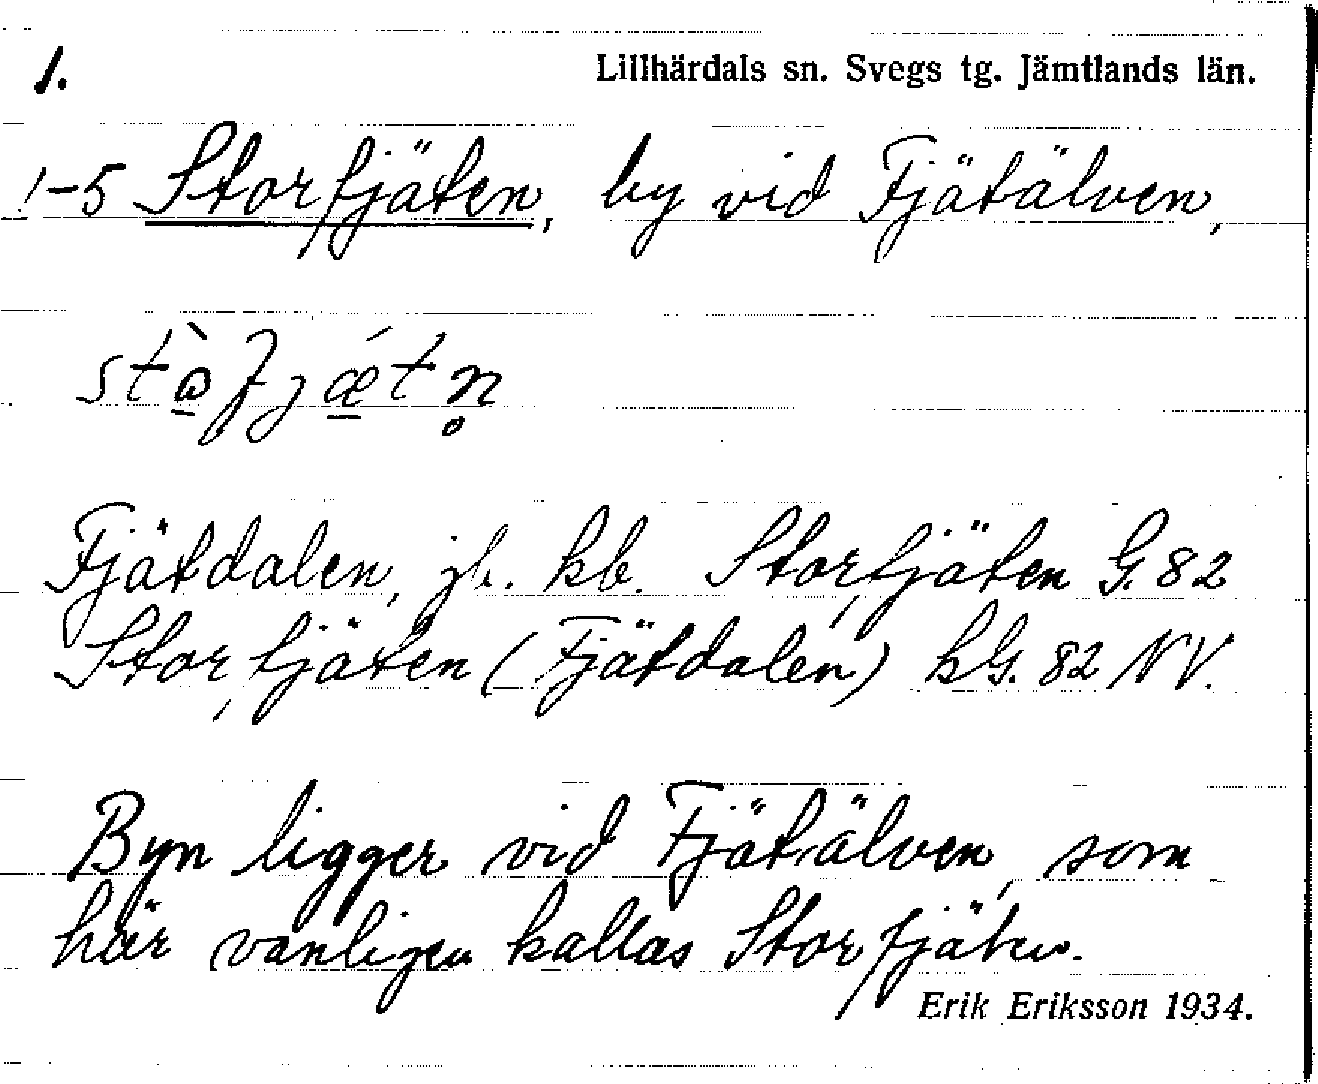 1.
Lillhärdals sn. Svegs tg. Jämtlands län.
1-5 Storfjäten, by vid Fjätälven,
Fjätdalen, jb. kb. Storfjäten G. 82
Storfjäten (Fjätdalen) hG. 82 NV.
Byn ligger vid Fjätälven, som
här vanligen kallas Storfjäten.
Erik Eriksson 1934.